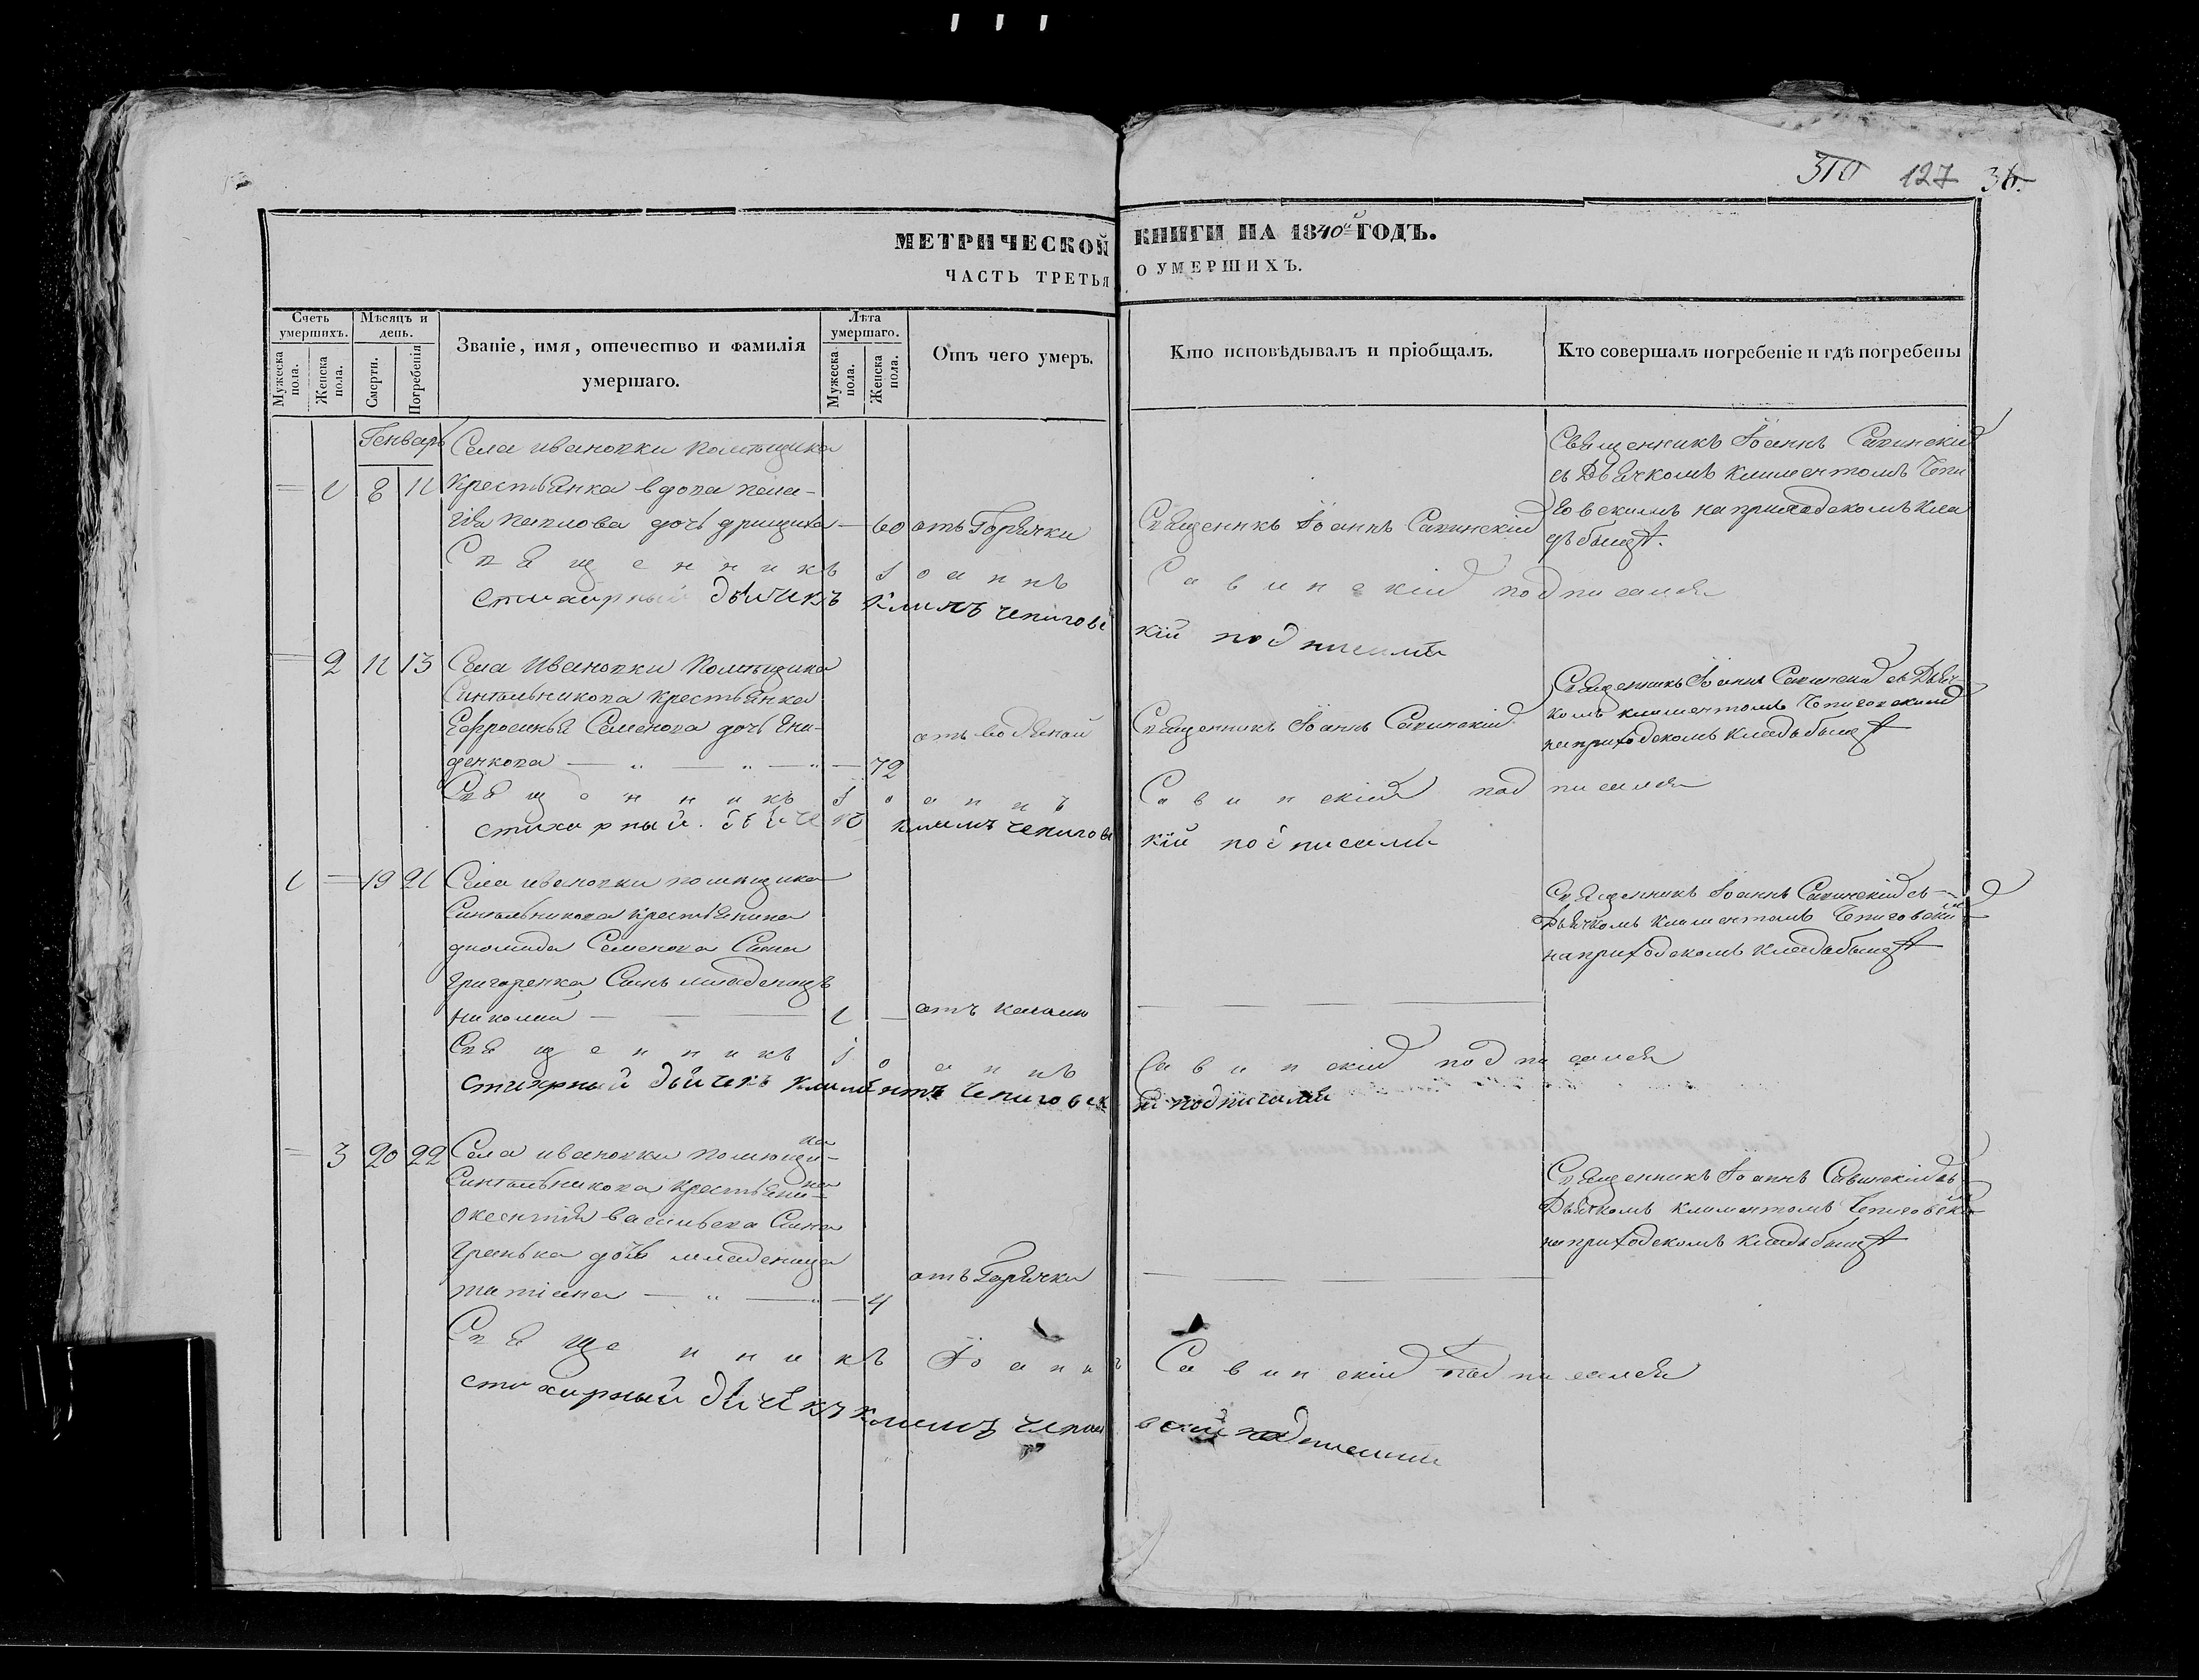 310 127 36.
МЕТРИЧЕСКОЙ КНИГИ НА 1840й ГОДЪ.
ЧАСТЬ ТРЕТЬЯ О УМЕРШИХЪ.
Счетъ умершихъ.
Мужеска пола.
Женска пола.
Мѣсяцъ и день.
Смерти.
Погребенія
Званіе, имя, отечество и фамилія
умершаго.
Лѣта умершаго.
Мужеска пола.
Женска пола.
Отъ чего умеръ.
Кто исповѣдывалъ и пріобщалъ.
Кто совершалъ погребеніе и гдѣ погребены
Генварь
1 8 11
Села ивановки помѣщика
Крестьянка вдова пела-
гія павлова дочь 60
отъ Горячки
Священикъ Іоаннъ Савинскій
Священникъ Іоаннъ Савинскій
съ Дьячкомъ климентомъ Чепи
говскимъ на приходскомъ кла
дбищѣ.
Священникъ Іоаннъ Савинскій подписался
стихарный дьячекъ климъ чепиговскій подписался
2 11 13
Села Ивановки Помѣщика
Синтельникова Крестьянка
Ефросинья Семенова дочь
72
отъ водяной
Священникъ Іоаннъ Савинскій
Священникъ Іоаннъ Савинскій съ Дьяч-
комъ климентомъ Чепиговскимъ
на приходскомъ кладбищѣ
Священникъ Іоаннъ Савинскій подписался
стихарный дьячекъ климъ чепиговскій подписался
1 19 21
Села ивановки помѣщика
Синтельникова крестьянина
диомида Семенова Сына
Григоренка Сынъ младенецъ
николай 1
отъ кашлю
Священникъ Іоаннъ Савинскій съ
Дьячкомъ климентомъ Чепиговскимъ
на приходскомъ кладбищѣ
Священникъ Іоаннъ Савинскій подписался
стихарный дьячекъ климентъ чепиговскій подписался
3 20 22
Села ивановки помѣщика
Синтельникова крестьянина
васильева Сына
дочь младеница
татіана 4
отъ Горячки
Священникъ Іоаннъ Савинскій съ
Дьячкомъ климентомъ Чепиговскимъ
на приходскомъ кладбищѣ
Священникъ Іоаннъ Савинскій подписался
стихарный дьячекъ климъ чепиговскій подписался